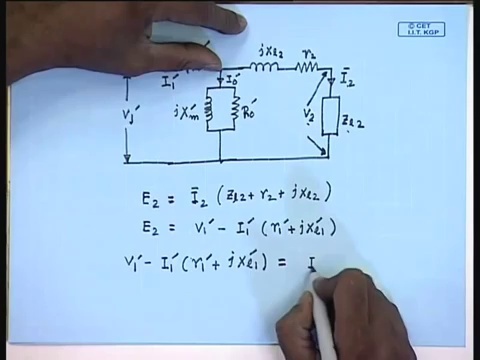 © CET
I.I.T. KGP
jxl₂ r₂
I₁′ I₀′ Ī₂
V₁′ jX′m R₀′ V₂ Zℓ₂
E₂ = Ī₂ ( Zℓ₂ + r₂ + jxl₂ )
E₂ = V₁′ − I₁′ ( r₁′ + jxl₁′ )
V₁′ − I₁′ ( r₁′ + j xl₁′ ) = I